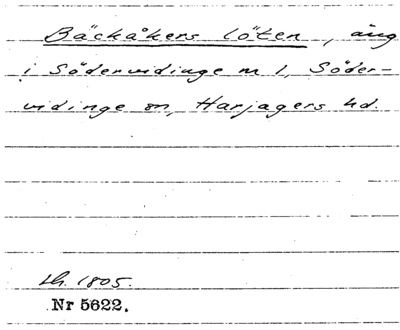 Bäckåkers löten, äng
i Södervidinge nr 1, Söder-
vidinge sn, Harjagers hd.
Lh. 1805.
Nr 5622.